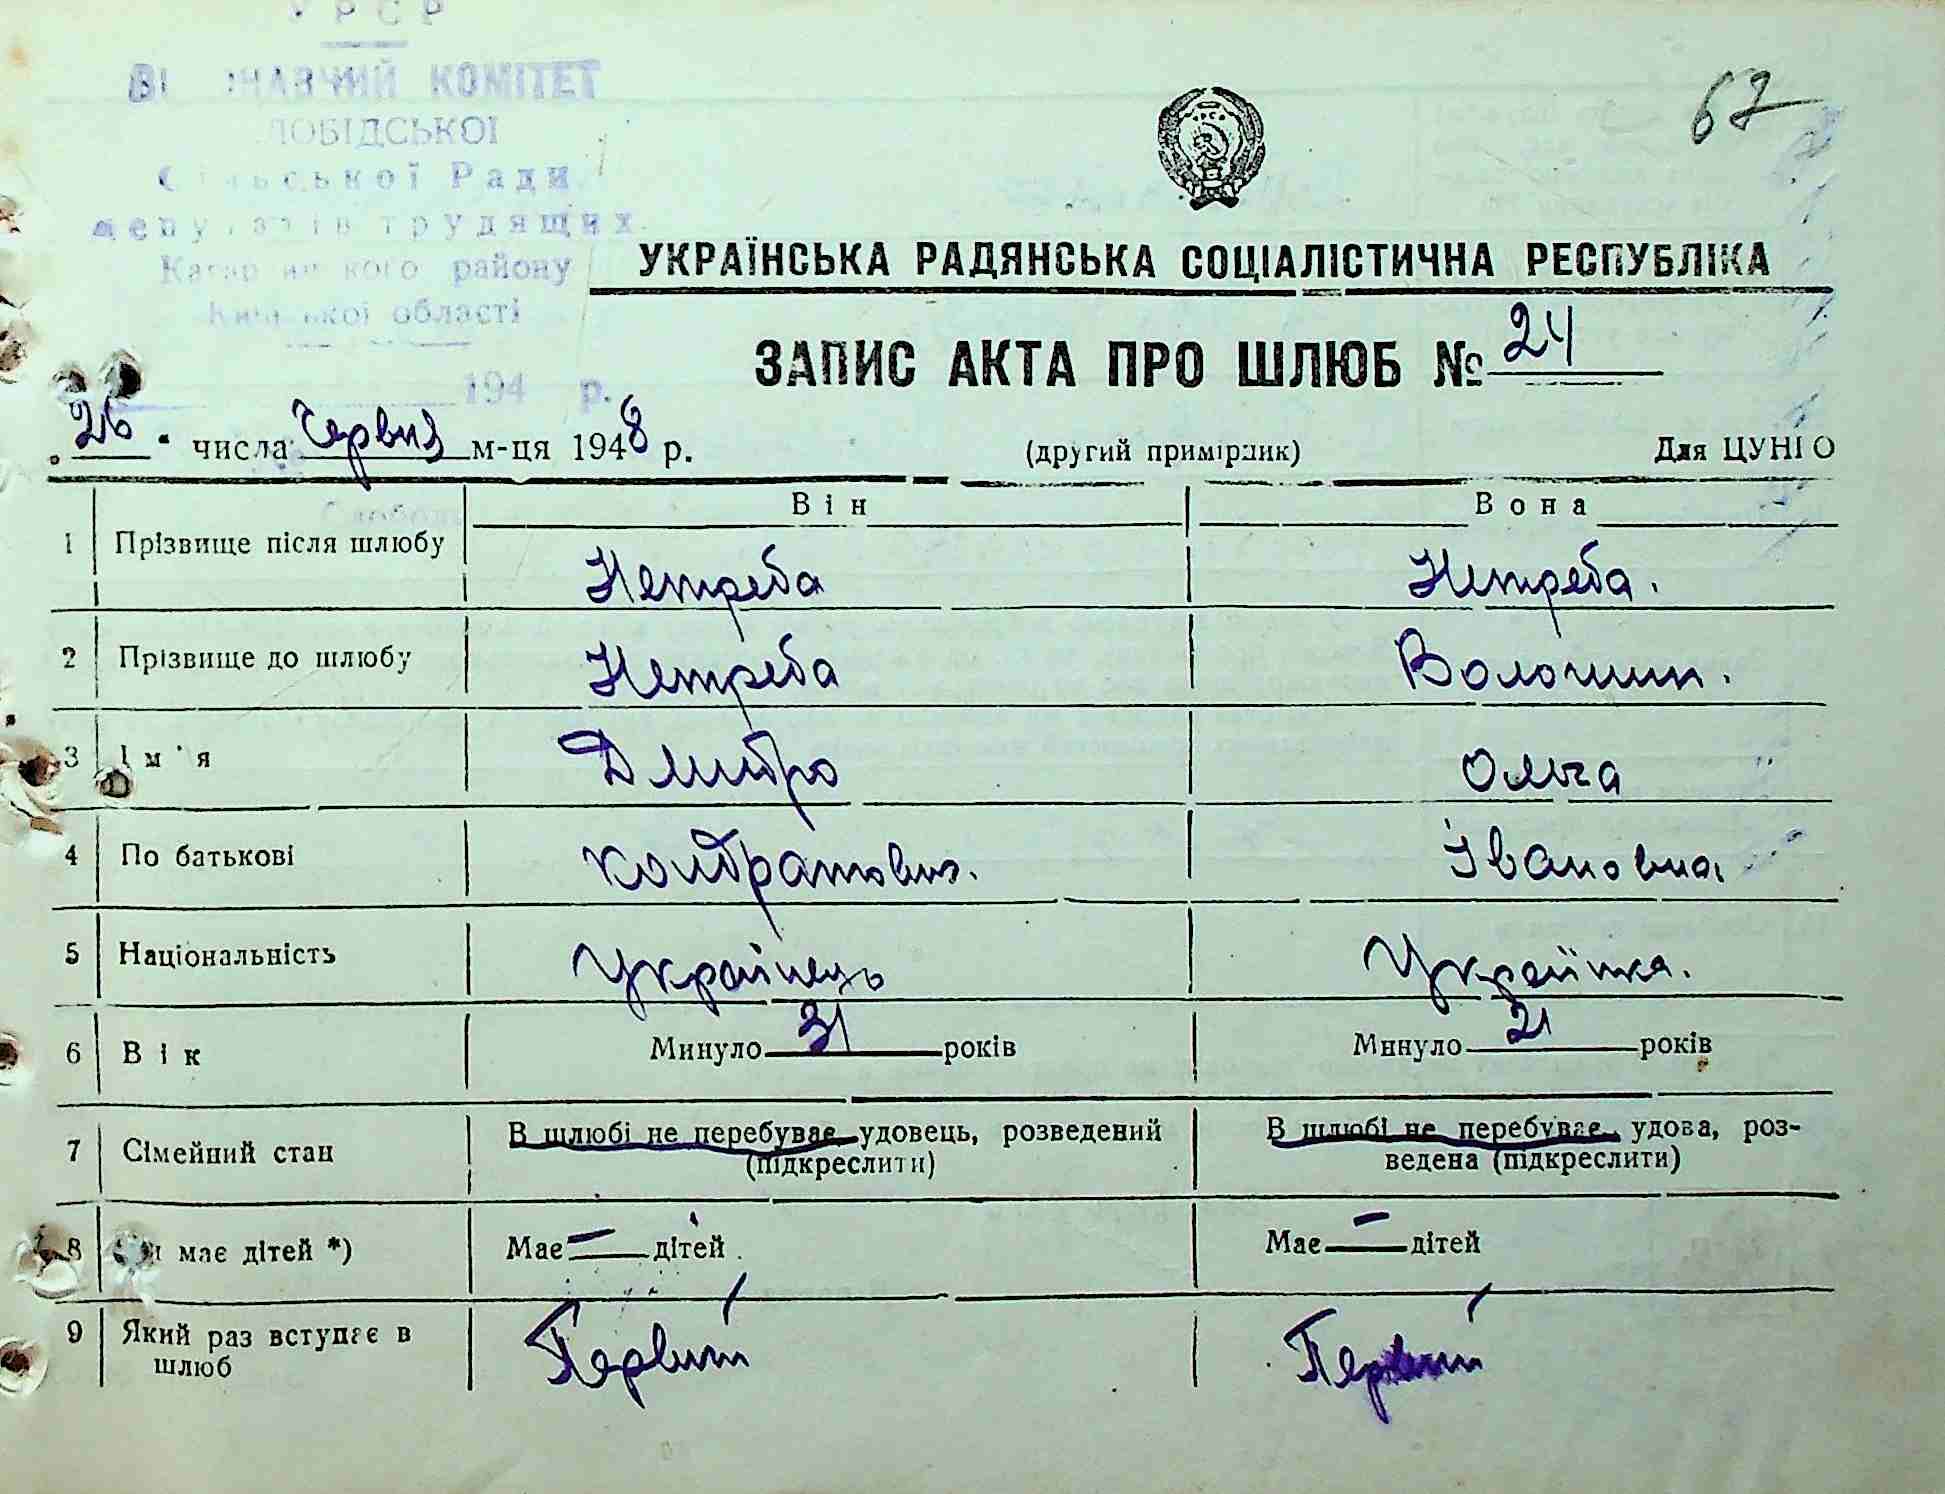 УРСР
КОМІТЕТ
Ради
трудящих
району
області
67
УКРАЇНСЬКА РАДЯНСЬКА СОЦІАЛІСТИЧНА РЕСПУБЛІКА
ЗАПИС АКТА ПРО ШЛЮБ № 24
194 р.
26 числа Червня м-ця 1948 р. (другий примірник) Для ЦУНГО
Він Вона
1 Прізвище після шлюбу Нетреба Нетреба.
2 Прізвище до шлюбу Нетреба Волошин.
3 Ім'я Дмитро Ольга
4 По батькові Кондратович. Івановна.
5 Національність Українець Українка.
6 Вік Минуло 31 років Минуло 21 років
7 Сімейний стан В шлюбі не перебуває, удовець, розведений (підкреслити) В шлюбі не перебуває, удова, роз-
ведена (підкреслити)
8 Чи має дітей *) Має — дітей Має — дітей
9 Який раз вступає в шлюб Первий Первий